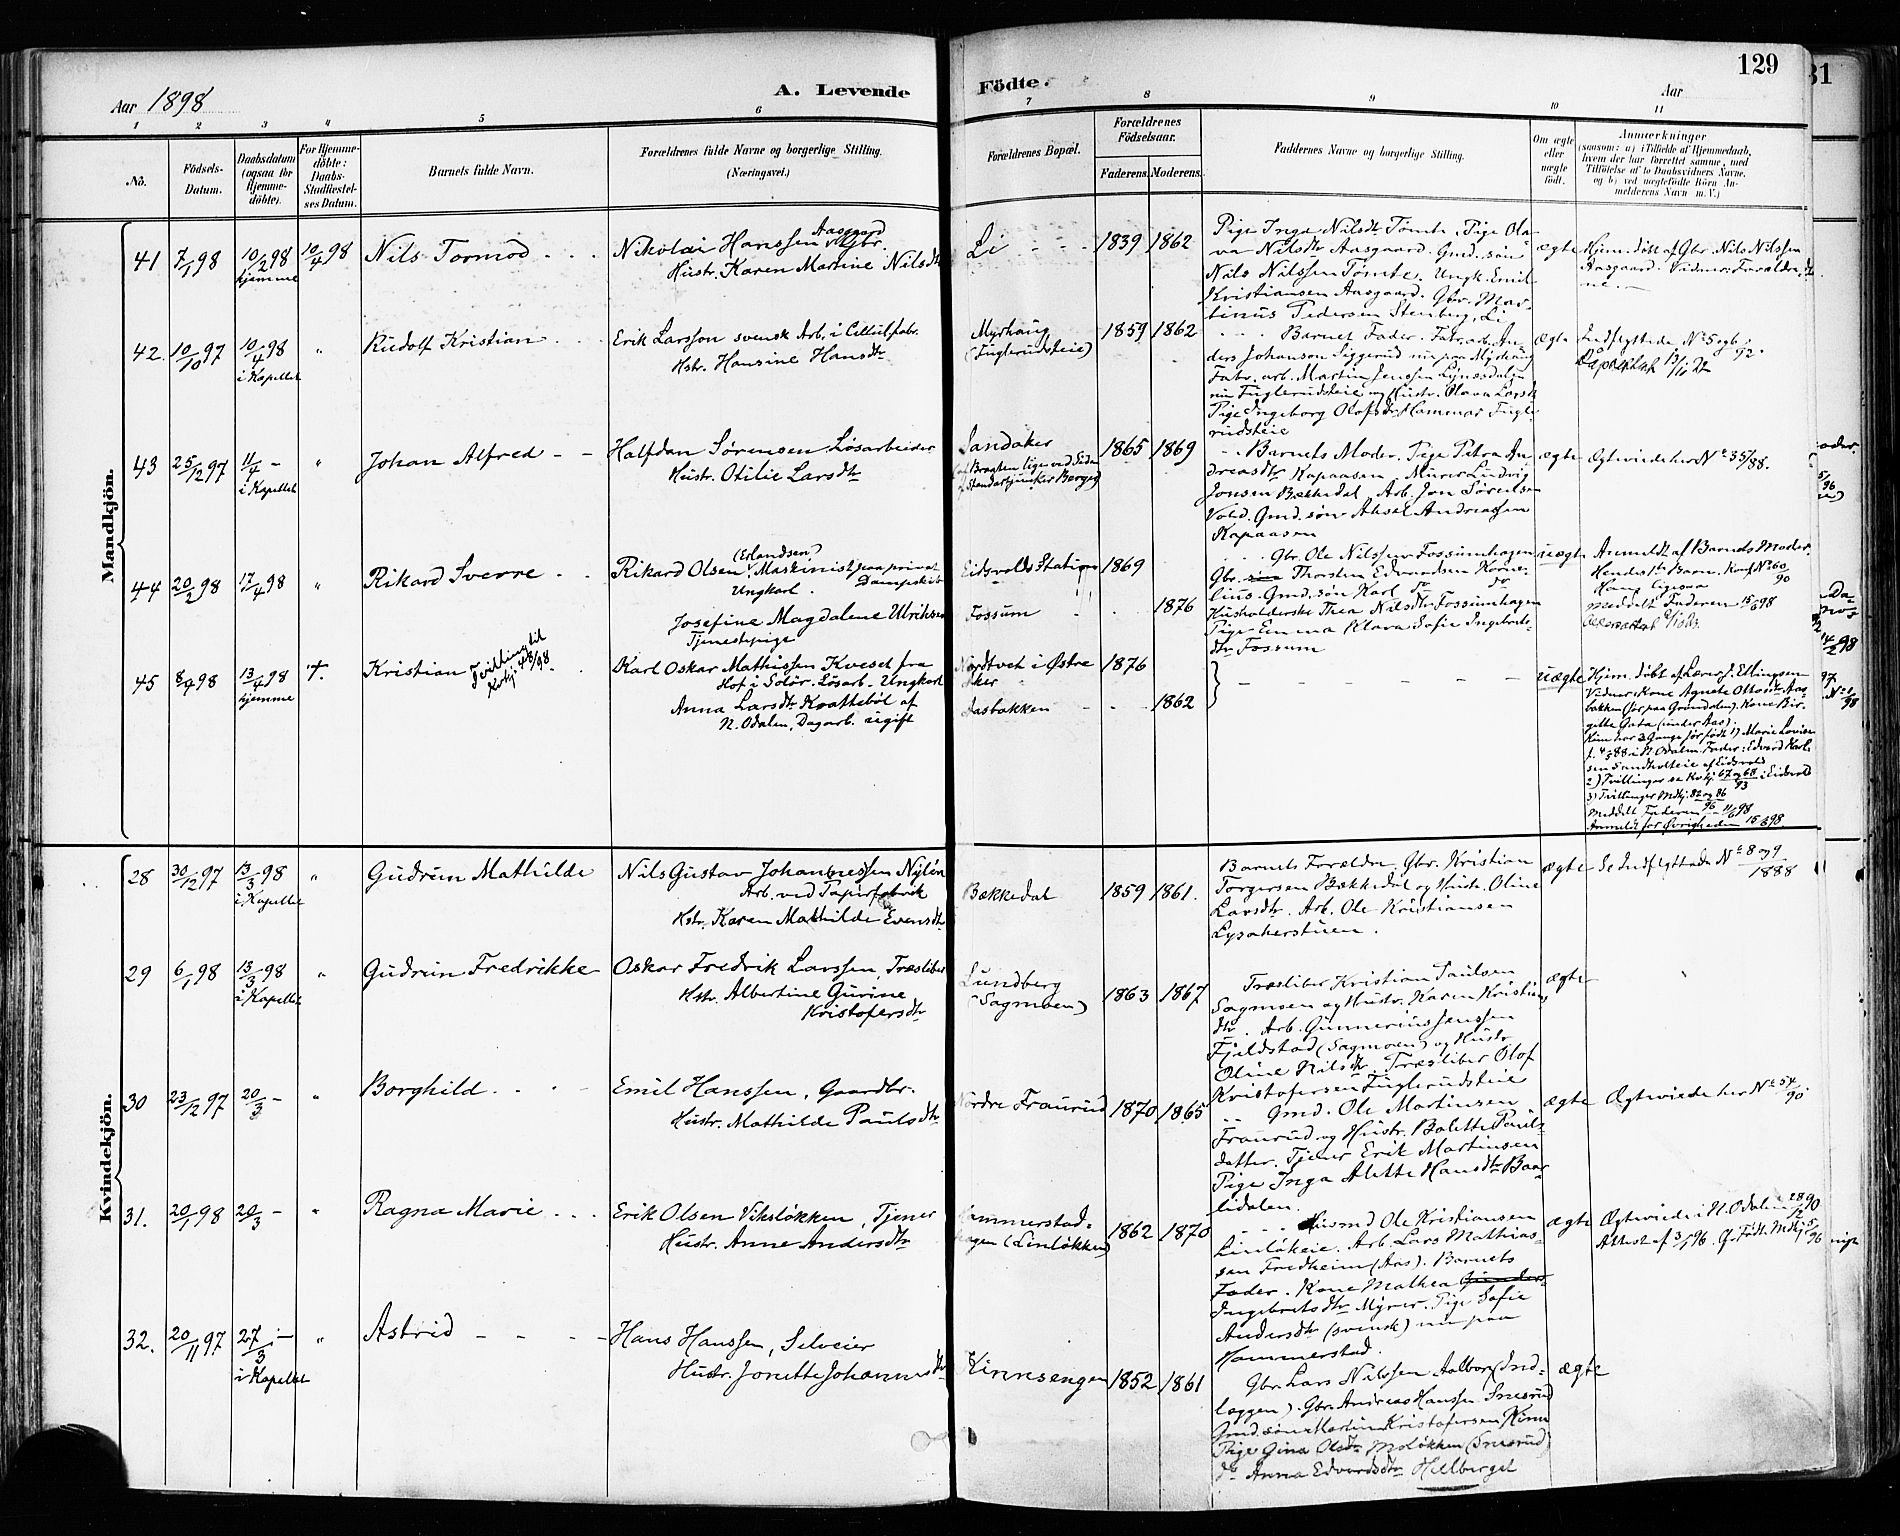 Aar 1898
A. Levende
Födte.
129
Aar
31
1 2 3 4 5 6 7 8 9 10 11
No.
Födsels-Datum.
Daabsdatum (ogsaa for Hjemme-döbte).
For Hjemme-döbte: Daabs-Stadfæstel-ses Datum.
Barnets fulde Navn.
Forældrenes fulde Navne og borgerlige Stilling. (Næringsvei.)
Forældrenes Bopæl.
Forældrenes Födselsaar.
Faderens. Moderens.
Faddernes Navne og borgerlige Stilling.
Om ægte eller uægte født.
Anmærkninger
(saasom: a) i Tilfælde af Hjemmedaab, hvem der har forrettet samme, med Tilföielse af to Daabsvidners Navne. og b) ved uægtefödte Börn An-melderens Navn m. V.)
Mandkjön.
41 7/1 98 10/2 98 hjemme 10/4 98 Nils Tormod
Nikolai Hanssen Aasgaard Gbr.
Hustr. Karen Martine Nilsdtr
Li 1839 1862
Pige Inga Nilsdtr Tömte, Pige Ola-
va Nilsdtr Aasgaard. Gmd. søn
Nils Nilssen Tömte, Ungk. Emil
Kristiansen Aasgaard. Gbr. Mar-
tinus Pedersen Stenberg, Li
ægte
Hjem. döbt af Gbr. Nils Nilssen
Aasgaard. Vidner: Forældre-
ne.
42. 10/10 97 10/4 98 i Kapellet " Rudolf Kristian
Erik Larsson svensk Arb. i Cellul.fabr.
Hstr. Hansine Hansdtr
Myrhaug
(Fuglerudsteie)
1859 1862
Barnets Fader. Fabr.arb. An-
ders Johanson Siggerud nu paa Myrhaug
Fabr. arb. Martin Jenssen
nu Fuglerudsteie og Hustr. Olava Larsdtr
Pige Ingeborg Olofsdtr Hammar Fugle-
rudsteie
ægte
Indflyttede No 5 og 6/92.
43 25/12 97 11/4 - i Kapellet " Johan Alfred
Halfdan Sørensen Løsarbeider
Hustr. Otilie Larsdtr
Sandaker
1865 1869
Barnets Moder. Pige Petra An-
dreasdtr Kapaasen Murer Ludvig
Jonsen Bækkedal, Arb. Jon Sørensen
Vold. Gmd. søn Aksel Andreassen
Kapaasen
ægte
Ægteviede her No 35/88.
44 20/2 98 17/4 98 " Rikard Sverre
Rikard Olsen (Erlandsen) Maskinist paa privat
Ungkarl. Dampskib
Josefine Magdalene Ulriksen
Tjenestepige
Eidsvolds Station 1869
Fossum 1876
Gbr. Ole Nilssen Fossumhagen
Gbr. Thorsten Edvardsen Korne-
lius. Gmd. søn Karl do do
Husholderske Thea Nilsdtr Fossumhagen
Pige Emma Klara Sofie Ingebrets-
dtr Fossum
uægte
Anmeldt af Barnets Moder.
Hendes 1ste Barn. Konf. No 60/90
Hans ligesaa
Meddelt Faderen 15/6 98
45 8/4 98 13/4 98 hjemme †. Kristian Tvilling til Kvkj. 43/98.
Karl Oskar Mathissen Kveset fra
Hof i Solør. Løsarb. Ungkarl
Anna Larsdtr Kvatteböl af
N. Odalen, Dagarb. ugift
Nordtvet i Østre
Aker 1876
Aasbakken 1862
uægte
Hjem. döbt af Lærer J. Ellingsen
Vidner: Kone Agnete Ottosdtr Aas-
bakken (før paa Gröndalen). Kone Bir-
gitte Gata (under Aas).
Hun har 3 Gange før født 1) Marie Lovise
f. 4/3 88 i N. Odalen. Fader: Edvard Karl-
sen Sandholteie af Eidsvold
2) Tvillinger se Kvkj. 67 og 68/93 i Eidsvold
3) Tvillinger Mdkj. 82 og 86/96
Meddelt Faderen 11/6 98
Anmeldt for Øvrigheden 15/6 98.
Kvindekjön.
28 30/12 97 13/3 98 i Kapellet " Gudrun Mathilde
Nils Gustav Johannessen Nylén
Arb. ved Papirfabrik
Hstr. Karen Mathilde Evensdtr
Bækkedal 1859 1861.
Barnets Forældre, Gbr. Kristian
Torgersen Bækkedal og Hustr. Oline
Larsdtr. Arb. Ole Kristiansen
Lysakerstuen.
ægte
Se Indflyttede No 8 og 9/1888
29 6/1 98 13/3 98 i Kapellet " Gudrun Fredrikke
Oskar Fredrik Larssen, Træsliber
Hstr. Albertine Gurine
Kristofersdtr
Lundberg
(Sagmoen)
1863 1867
Træsliber Kristian Paulsen
Sagmoen og Hustr. Karen Kristians-
dtr. Arb. Gunnerius Jenssen
Fjeldstad (Sagmoen) og Hustr
Oline Nilsdtr. Træsliber Olof
Kristofersen Fuglerudsteie
ægte
30 23/12 97 20/3 - " Borghild
Emil Hanssen, Gaardbr.
Hustr. Mathilde Paulsdtr
Nordre Fraurud 1870 1865
Gmd. Ole Martinsen
Fraurud og Hustr. Bolette Pauls-
datter. Tjener Erik Martinsen
Pige Inga Alette Hansdtr Baar-
lidalen.
ægte
Ægteviede her No 54/90.
31. 20/1 98 20/3 - " Ragna Marie
Erik Olsen Viksløkken, Tjener
Hustr. Anne Andersdtr
Hammerstad-
hagen (Linløkken)
1862 1870
Husmd Ole Kristiansen
Linløkeie. Arb. Lars Mathias-
sen Fredheim (Aas). Barnets
Fader. Kone Mathea
Ingebretsdtr Myrer. Pige Sofie
Andersdtr (svensk) nu paa
Hammerstad.
ægte
Ægteviede i N. Odalen 28/12 90
Attest af 3/1 96. Cf. Født. Mdkj 5/96
32. 20/11 97 27/3 - i Kapellet " Astrid
Hans Hanssen, Selveier
Hustr. Jonette Johannesdtr
Kinnsengen 1852 1861
Gbr. Lars Nilssen Aalborg (Ind-
læggen). Gbr. Andreas Hanssen Snesrud
Gmd. søn Martin Kristofersen Kinn
Pige Gina Olsdtr Moløkken (Snesrud)
do Anna Edvardsdtr Helberget
ægte